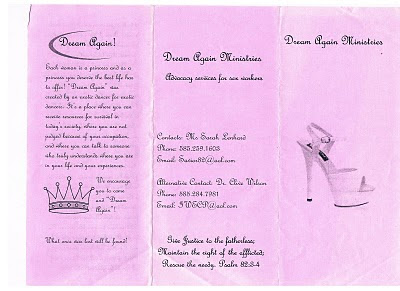 Dream Again!
Each woman is a princess and as a
princess you deserve the best life has
to offer! "Dream Again" was
created by an exotic dancer for exotic
dancers. It's a place where you can
receive resources for survival in
today's society, where you are not
judged because of your occupation,
and where you can talk to someone
who truly understands where you are
in your life and your experiences.
We encourage
you to come
and "Dream
Again"!
What once was lost will be found!
Dream Again Ministries
Advocacy services for sex workers
Contacts: Ms. Sarah Lenhard
Phone: 585.259.1603
Email: Savior82@aol.com
Alternative Contact: Dr. Clive Wilson
Phone: 585.284.7981
Email: IWECP@aol.com
Give Justice to the fatherless;
Maintain the right of the afflicted;
Rescue the needy. Psalm 82:3-4
Dream Again Ministries